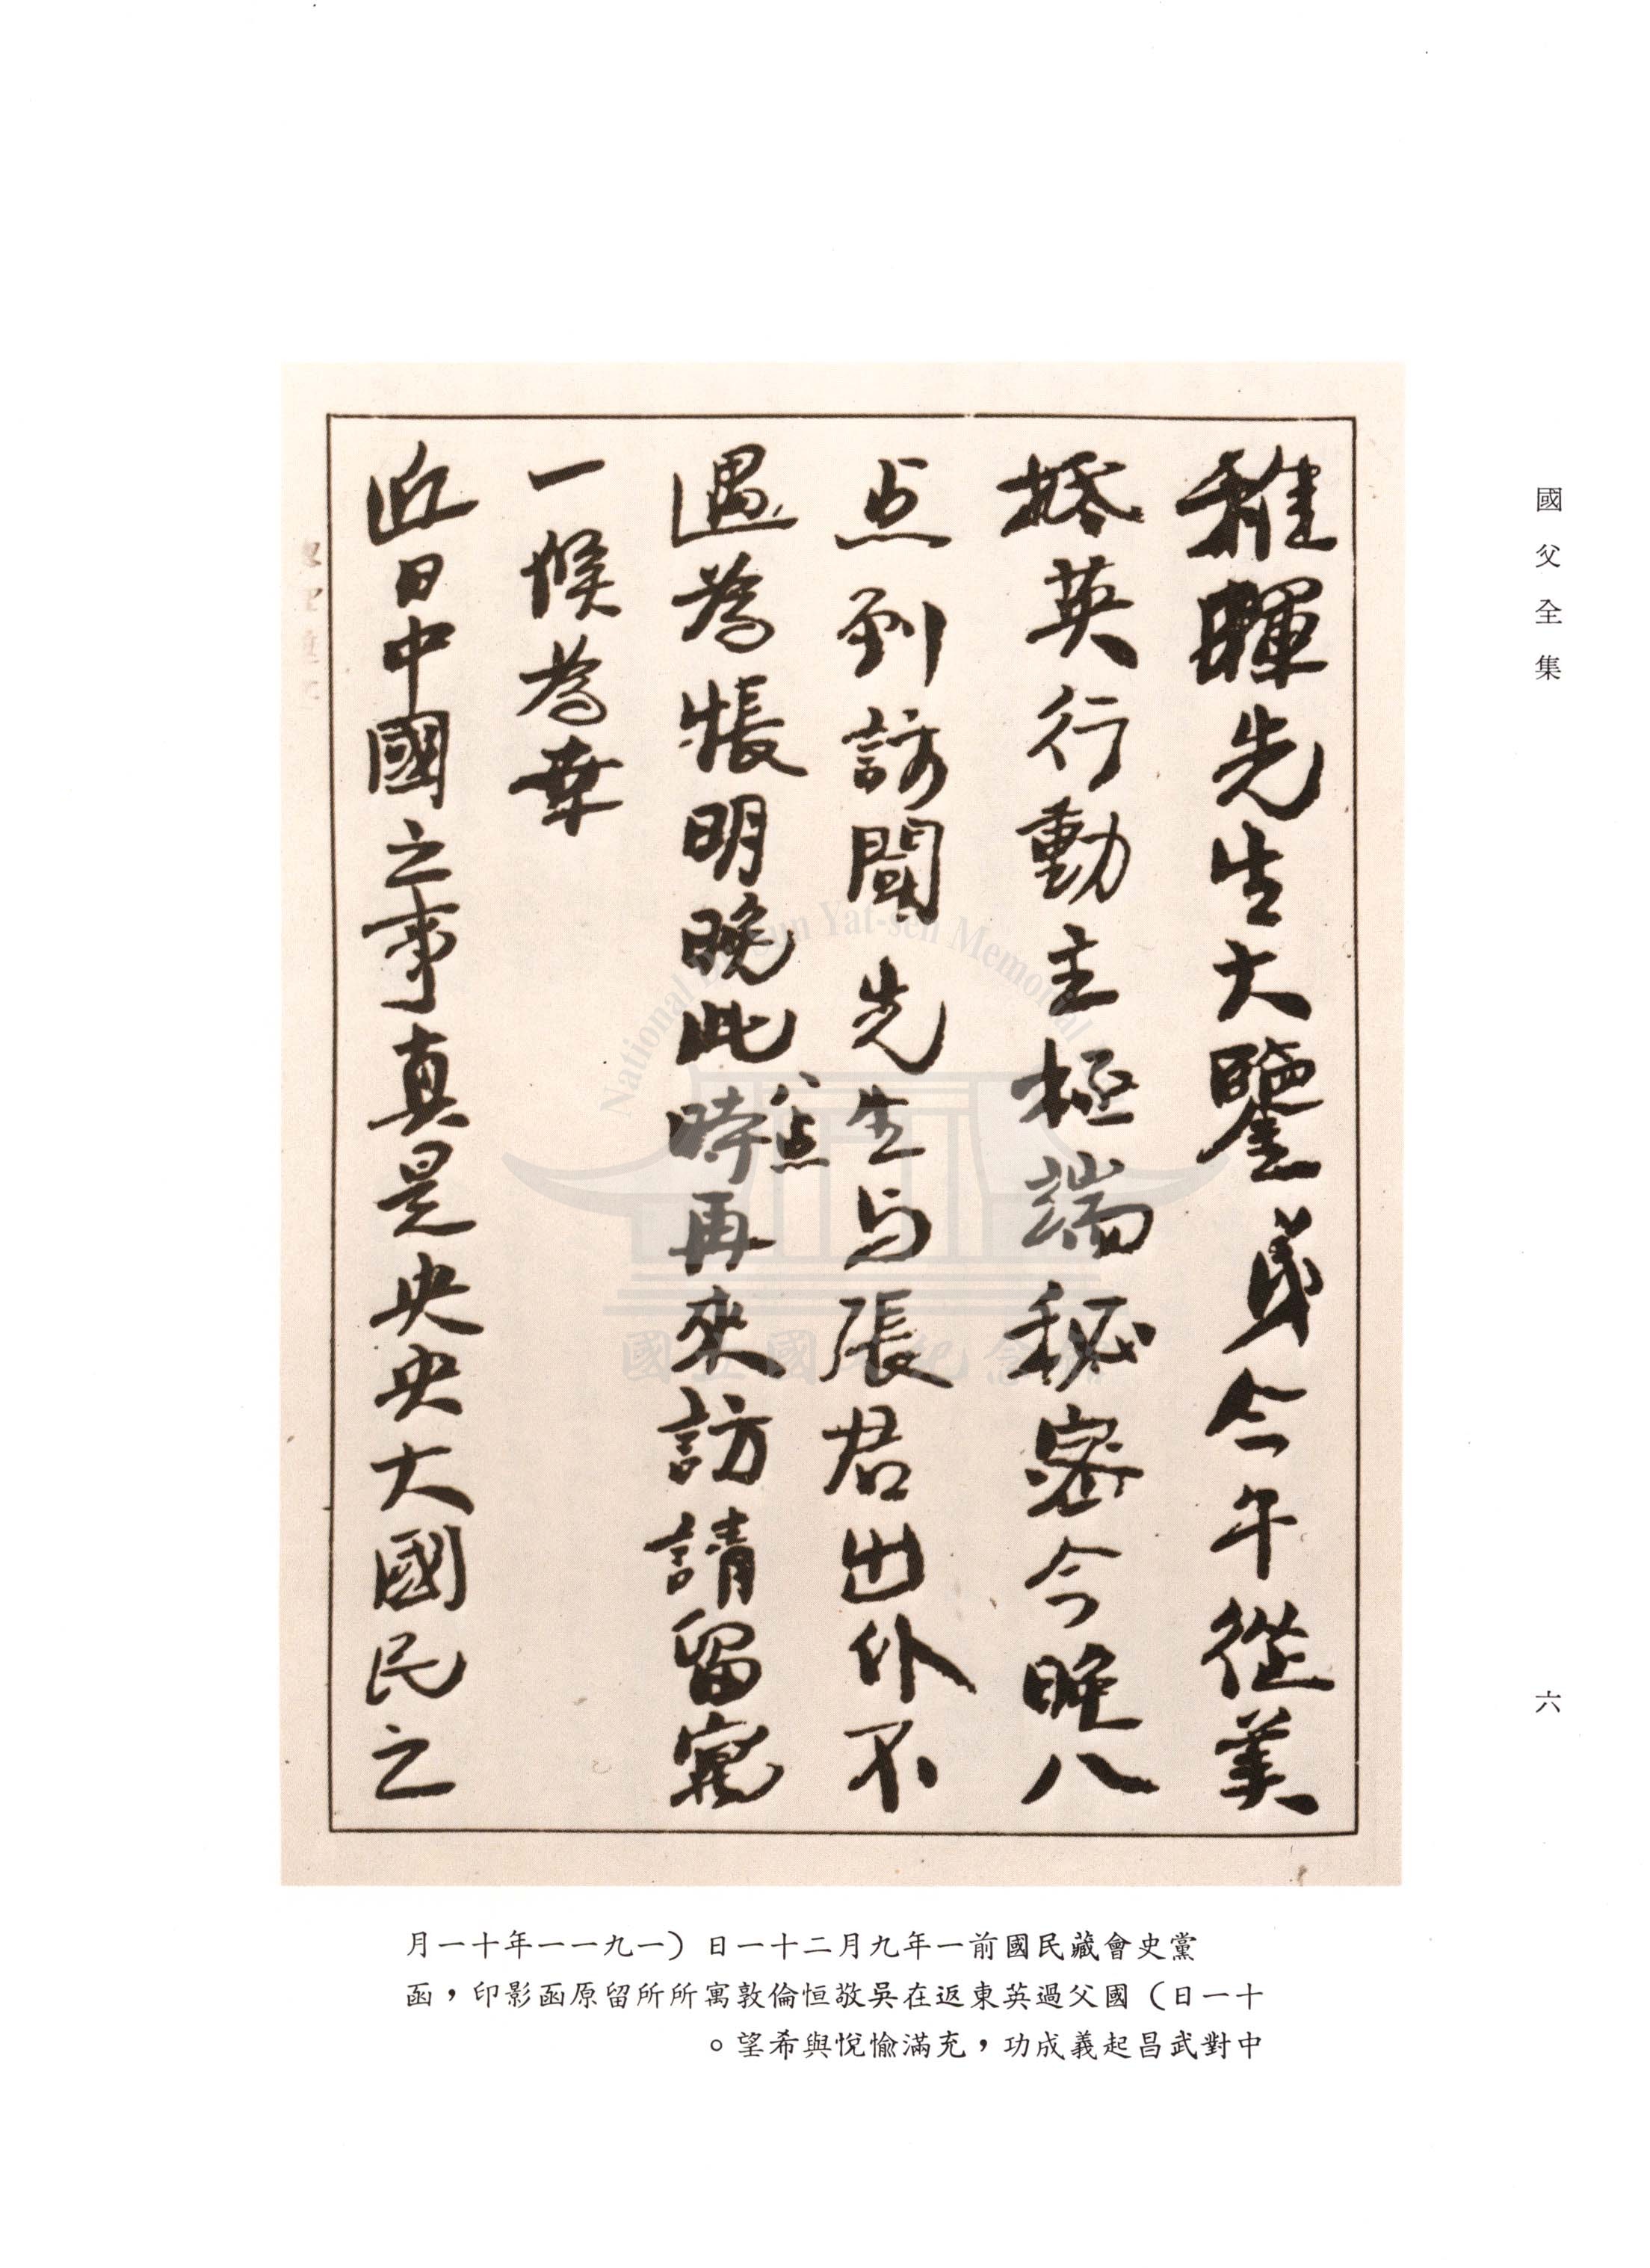 國父全集
六
稚暉先生大鑒弟今午從美
抵英行動主極端秘密今晚八
点到訪聞 先生与張君出外不
遇為悵明晚此時再來訪請留寓
八点
一候為幸
近日中國之事真是央央大國民之
黨史會藏民國前一年九月二十一日(一九一一年十一月
十一日)國父過英東返在吳敬恒倫敦寓所所留原函影印,函
中對武昌起義成功,充滿愉悅與希望。
National Sun Yat-sen Memorial
國立國父紀念館